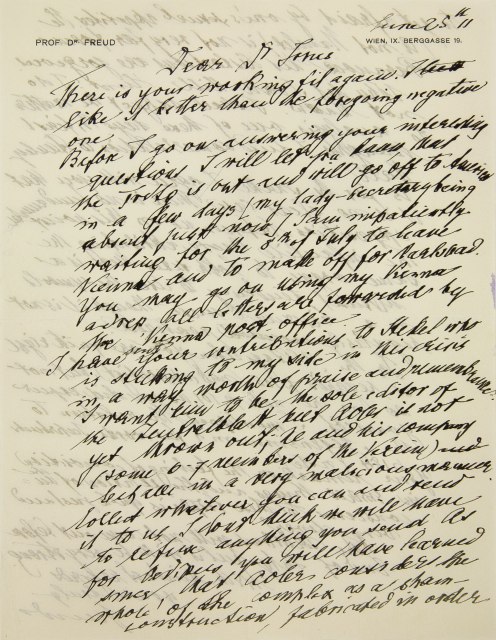 June 25th 11
PROF. Dr. FREUD
WIEN, IX. BERGGASSE 19.
Dear Dr Jones
There is your working fit again. I
like it better than the foregoing negative
one.
Before I go on answering your interesting
questions I will let you know that
the is out and will go off to America
in a few days (my lady-Secretary being
absent just now). I am impatiently
waiting for the of July to leave
Vienna and to make off for Karlsbad.
You may go on using my Vienna
adress all letters are forwarded by
the Vienna post-office.
I have your contributions to Stekel who
is sticking to my side in this crisis
in a way worth of praise and
I want him to be the sole editor of
the Zentralblatt but Adler is not
yet thrown out. He and his company
(some 6-7 members of the Verein) will
behave in a very malicious manner.
Collect whatever you can and send
it to us I don't think we will have
to refuse anything you send. As
for you will have learned
since that Adler considers the
whole of the complex as a sham
construction, fabricated in order